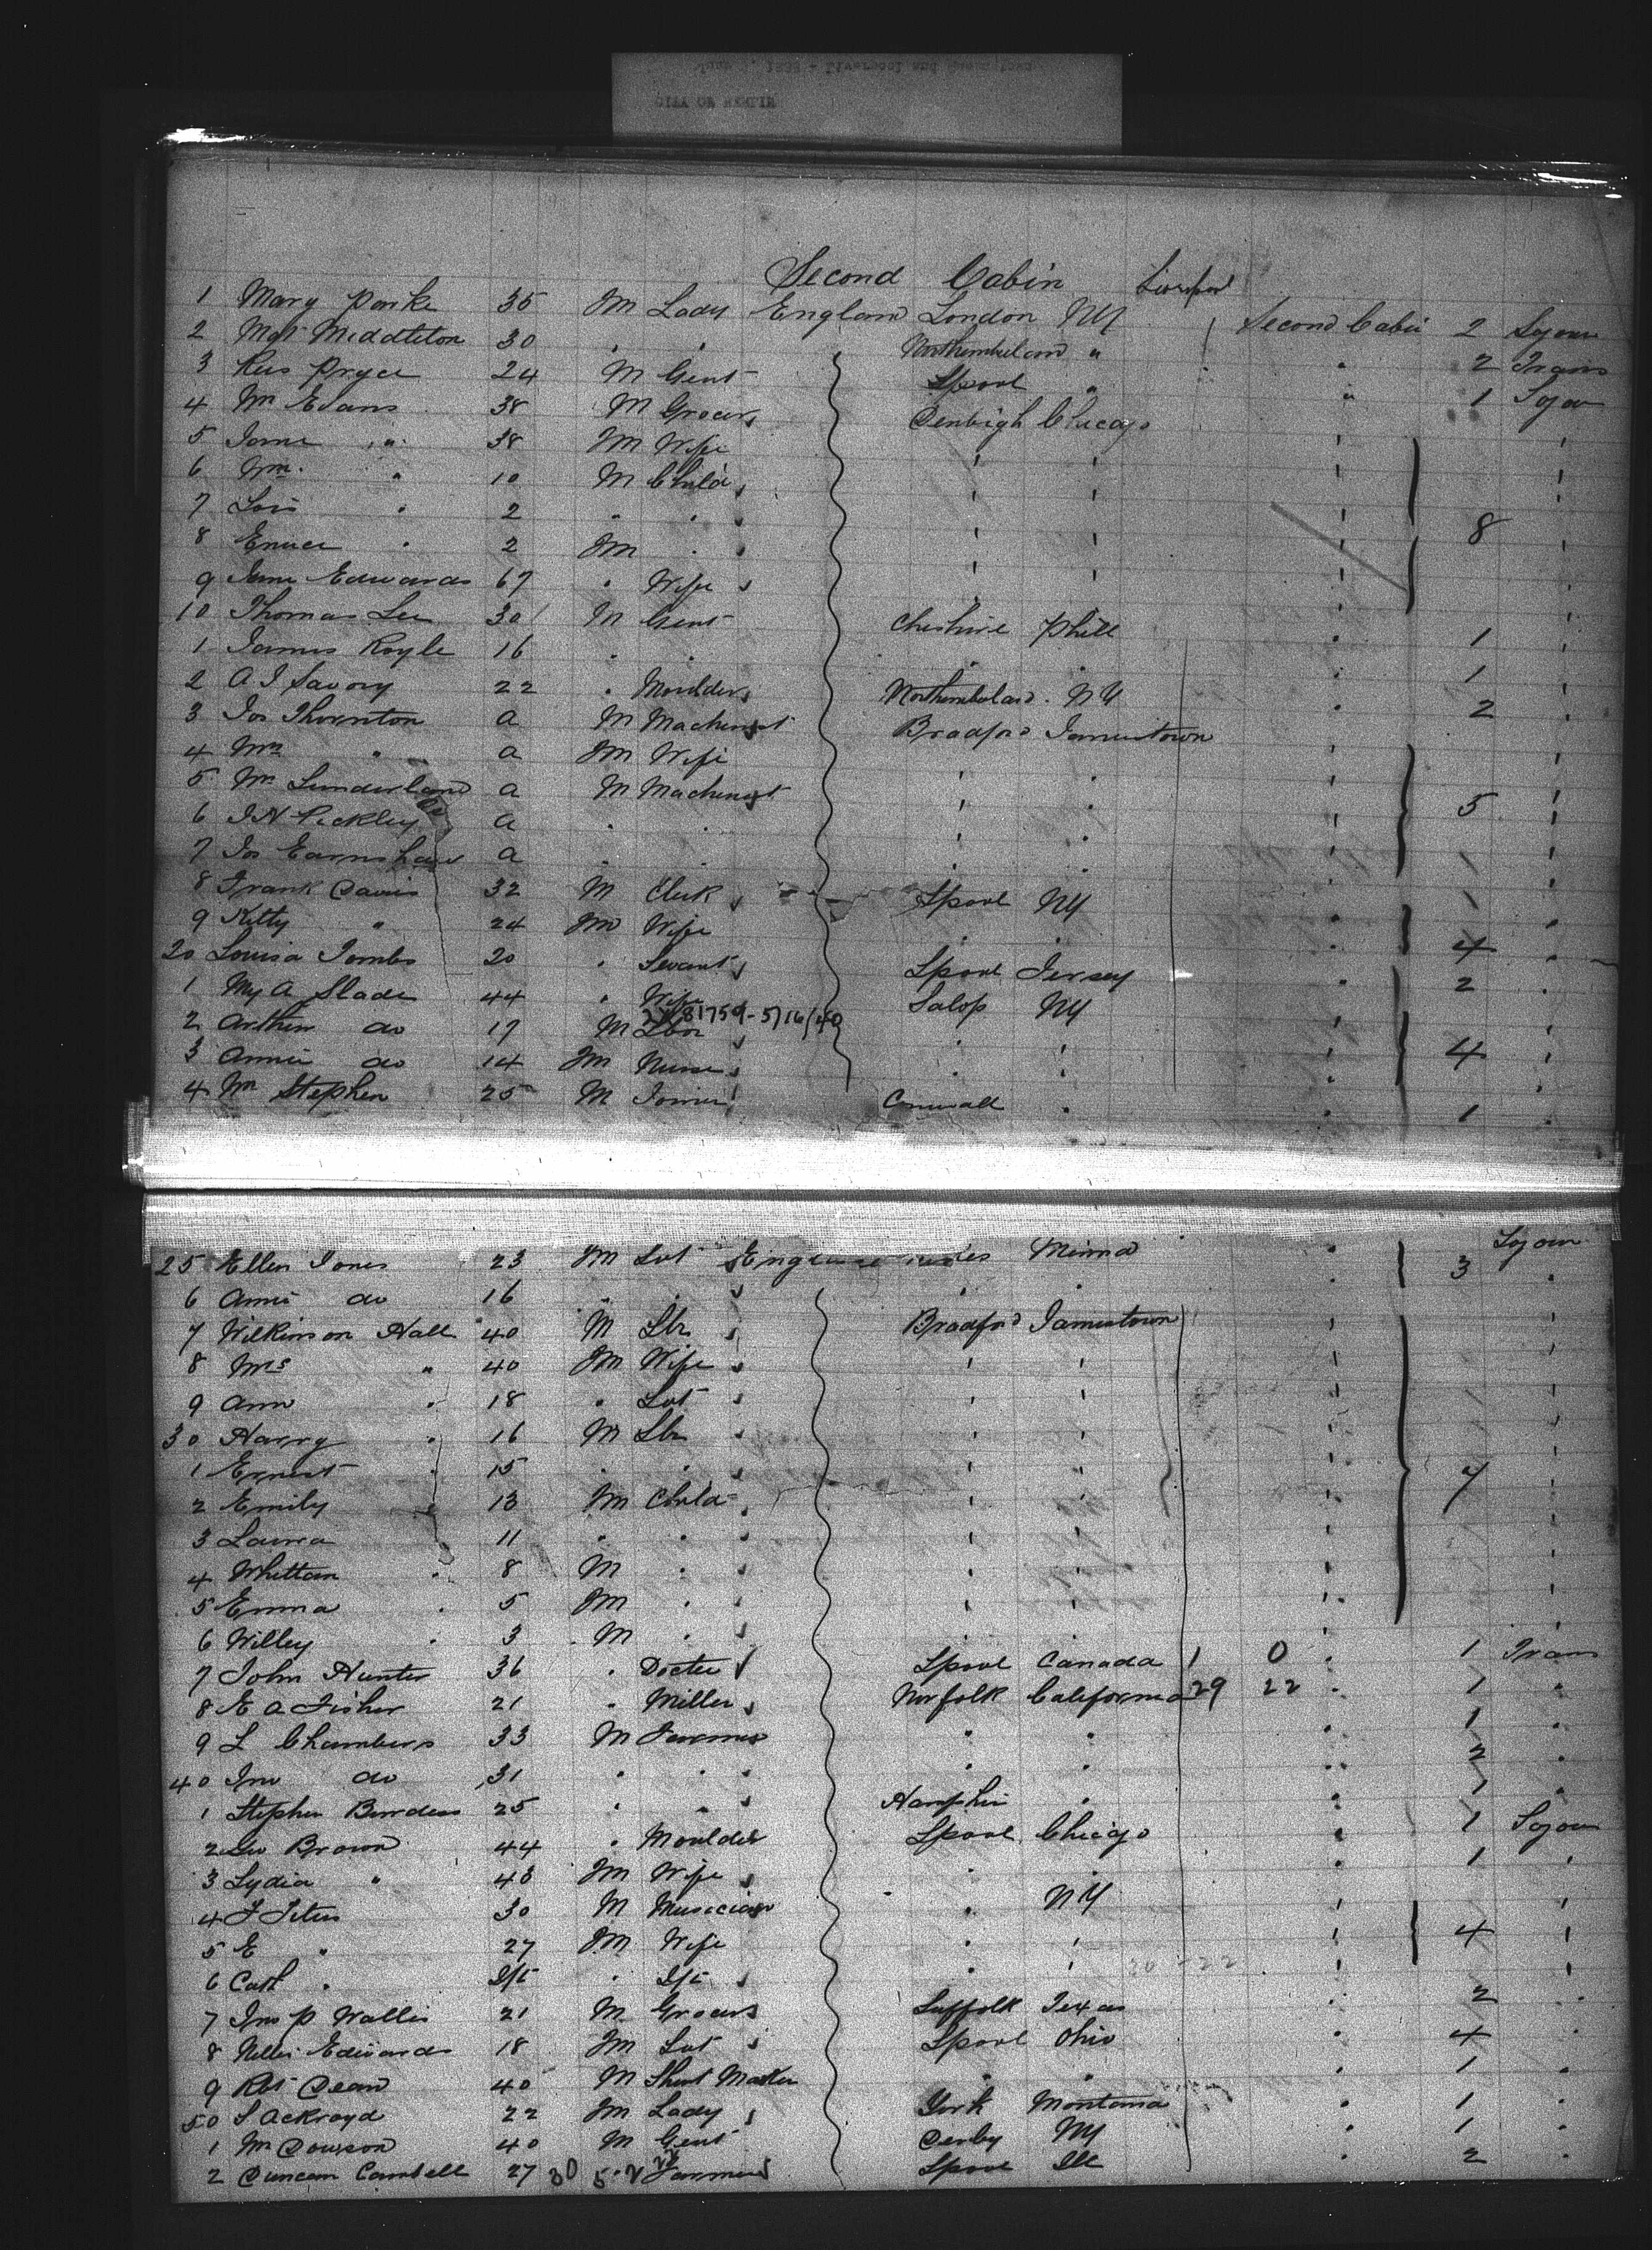 Second Cabin Liverpool
1 Mary Parke 35 Fm Lady England London NY Second Cabin 2 Sojour
2 Mgt Middleton 30 " " Northumberland " " 2 Trans
3 Rees Pryce 24 M Gent Lpool " " 1 Sojou
4 Wm Evans 38 M Grocer Denbigh Chicago
5 Jane " 38 Fm Wife " "
6 Wm " 10 M Child " "
7 Lois " 2 " " " " 8
8 " 2 Fm " " "
9 Jane Edwards 67 " Wife " "
10 Thomas Lee 30 M Gent Cheshire Phill 1
1 James Royle 16 " " " " 1
2 A J Savory 22 " Moulder Northumberland NY 2
3 Jos Thornton a M Machinest Bradford Jamestown
4 Mrs " a Fm Wife " "
5 Wm Sunderland a M Machinest " " 5
6 a " " " "
7 Jos Earnshaw a " " " "
8 Frank Davis 32 M Clerk Lpool NY
9 Kitty " 24 Fm Wife " " 4
20 Louisa Tombs 20 " Servant Lpool Jersey 2
1 My A Slade 44 " Wife Salop NY
2X81759-5/16/40
2 Arthur do 17 M Lbr " " 4
3 Annie do 14 Fm Nurse " "
4 Wm Stephen 25 M Joiner Cornwall " 1
25 Ellen Jones 23 Fm Svt England Wales Minna 3 Sojour
6 Annie do 16 " " " "
7 Wilkinson Hall 40 M Lbr Bradford Jamestown
8 Mrs " 40 Fm Wife " "
9 Ann " 18 " Svt " "
30 Harry " 16 M Lbr " "
1 Ernest " 15 " " " " 7
2 Emily " 13 Fm Child " "
3 Laura " 11 " " " "
4 Whittam " 8 M " " "
5 Emma " 5 Fm " " "
6 Willey " 3 M " " "
7 John Hunter 36 " Docter Lpool Canada 1 0 1 Trans
8 E A Fisher 21 " Miller Norfolk California 29 22 1 "
9 L Chambers 33 M Farmer " " 1 "
40 Jno do 31 " " " " 2 "
1 Stephen 25 " " " 1 "
2 Geo Brown 44 " Moulder Lpool Chicago 1 Sojou
3 Lydia " 43 Fm Wife " " 1
4 F Titus 30 M Musician " NY
5 E " 27 Fm Wife " " 4
6 Cath " Ift " Ift " " 30-22
7 Jno P Wallis 21 M Grocer Suffolk Texas 2
8 Nellie Edwards 18 Fm Svt Lpool Ohio 4
9 Rbt Dean 40 M Master " " 1
50 S Ackroyd 22 Fm Lady York Montana 1
1 Wm Dowson 40 M Gent Derby NY 1
2 Duncan Cambell 27 30 5 22 Farmer Lpool Ill 2